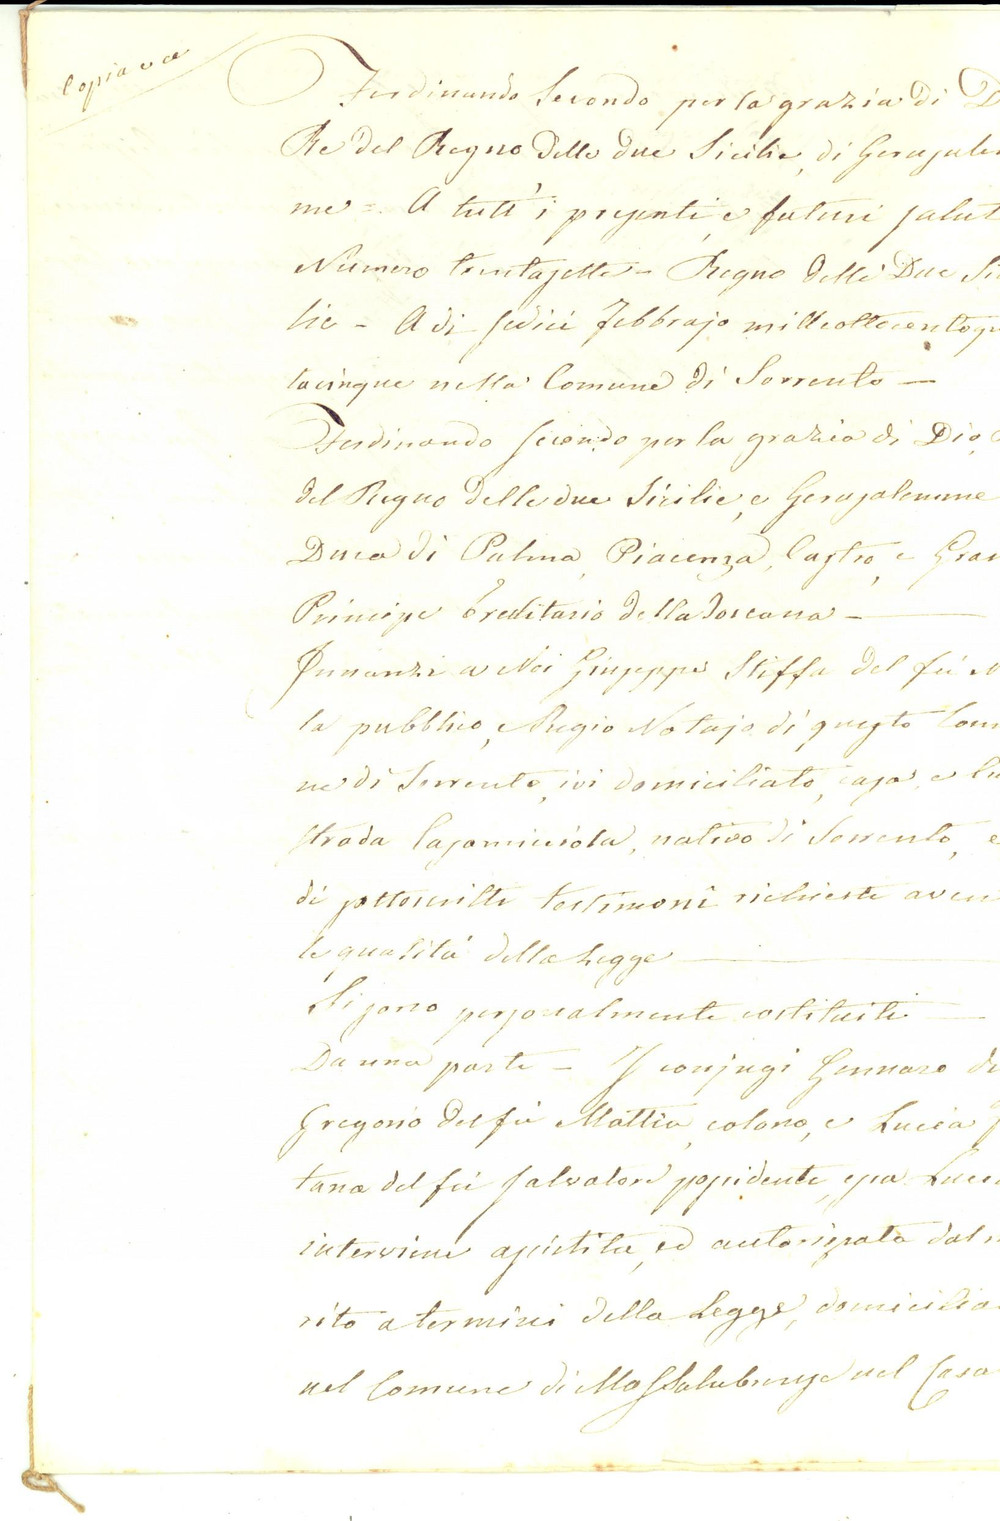 Copia
Ferdinando Secondo per la grazia di D
Re del Regno delle due Sicilie, di Gerusalem
me = A tutt'i presenti, e futuri salut
Numero trentasette - Regno delle Due Si
lie - A di sedici Febbrajo milleottocentoqu
tacinque nella Comune di Sorrento -
Ferdinando secondo per la grazia di Dio,
del Regno delle due Sicilie, e Gerusalemme
Duca di Palma, Piacenza, Castro, e Gran
Principe Ereditario della Toscana -
Innanzi a Noi Giuseppe Stiffa del fù
la pubblico, e Regio Notajo di questo Com
ne di Sorrento, ivi domiciliato, casa, e Cu
strada Casamicciola, nativo di Sorrento, e
di sottoscritti testimoni richieste aven
le qualità della Legge
Si sono personalmente costituiti
Da una parte - I conjugi Gennaro di
Gregorio del fù Mattia, colono, e Lucia
tana del fù Salvatore possidente, essa Luci
interviene assistita, ed autorizzata dal m
rito a termini della Legge, domicilia
nel Comune di Massalubrense nel Casa